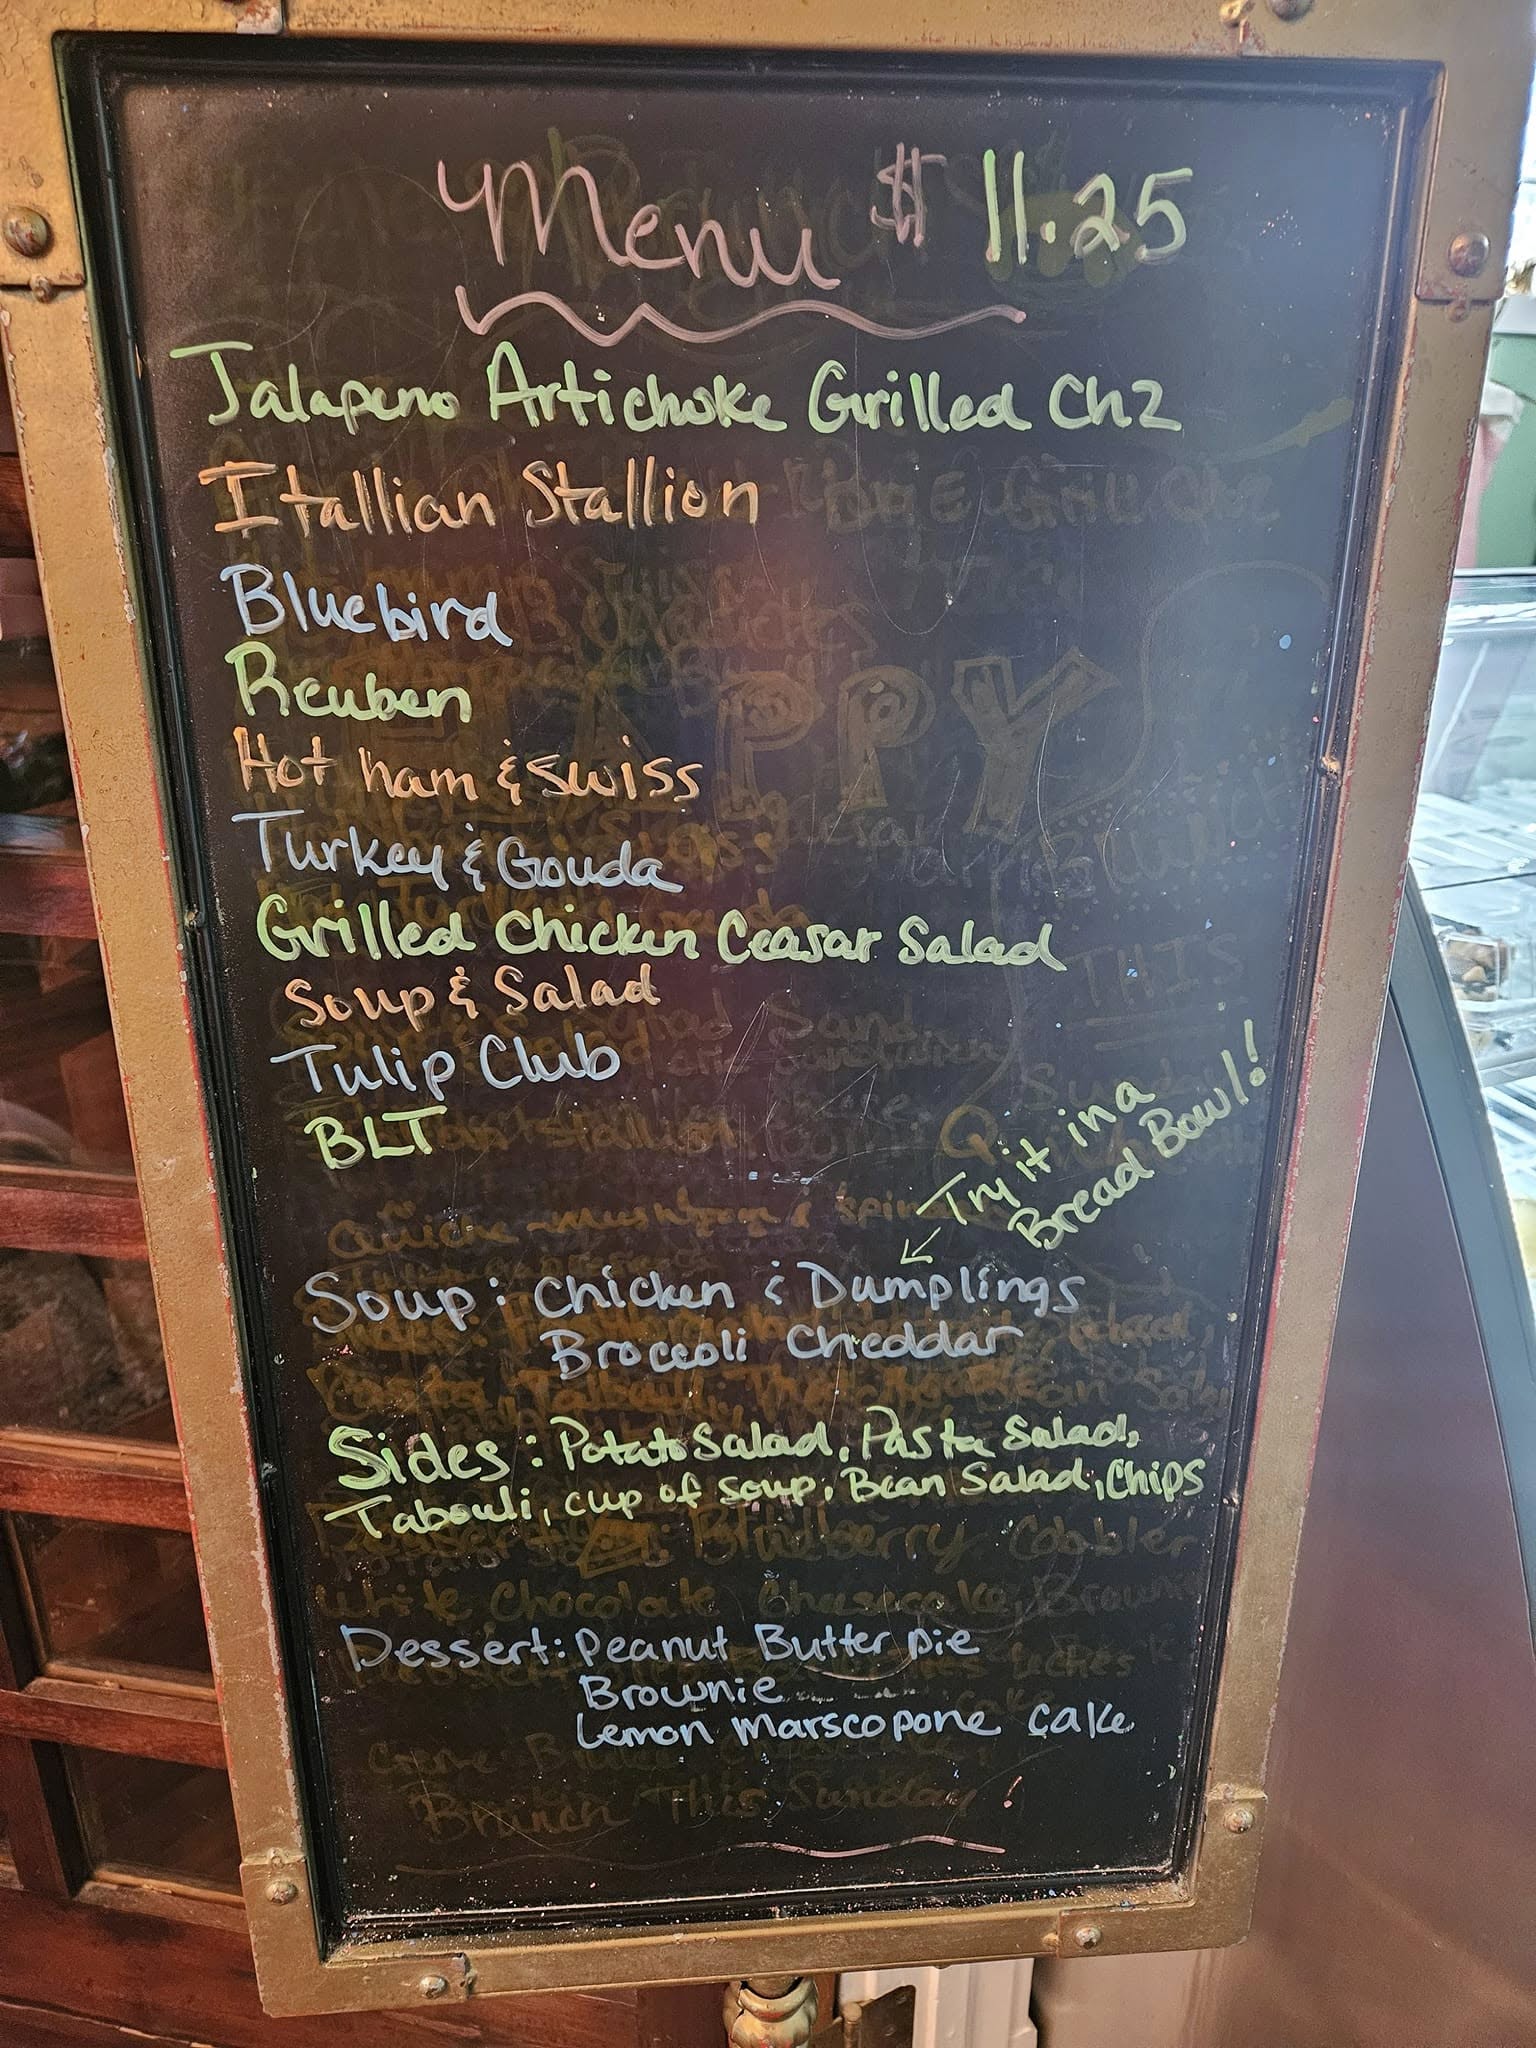 Menu $ 11.25
Jalapeno Artichoke Grilled Chz
Itallian Stallion
Bluebird
Reuben
Hot ham & swiss
Turkey & Gouda
Grilled Chicken Ceasar Salad
Soup & Salad
Tulip Club
BLT
Try it in a
Bread Bowl!
Soup: Chicken & Dumplings
Broccoli Cheddar
Sides: Potato Salad, Pasta Salad,
Tabouli, cup of soup, Bean Salad, Chips
Dessert: Peanut Butter pie
Brownie
Lemon Marscopone cake